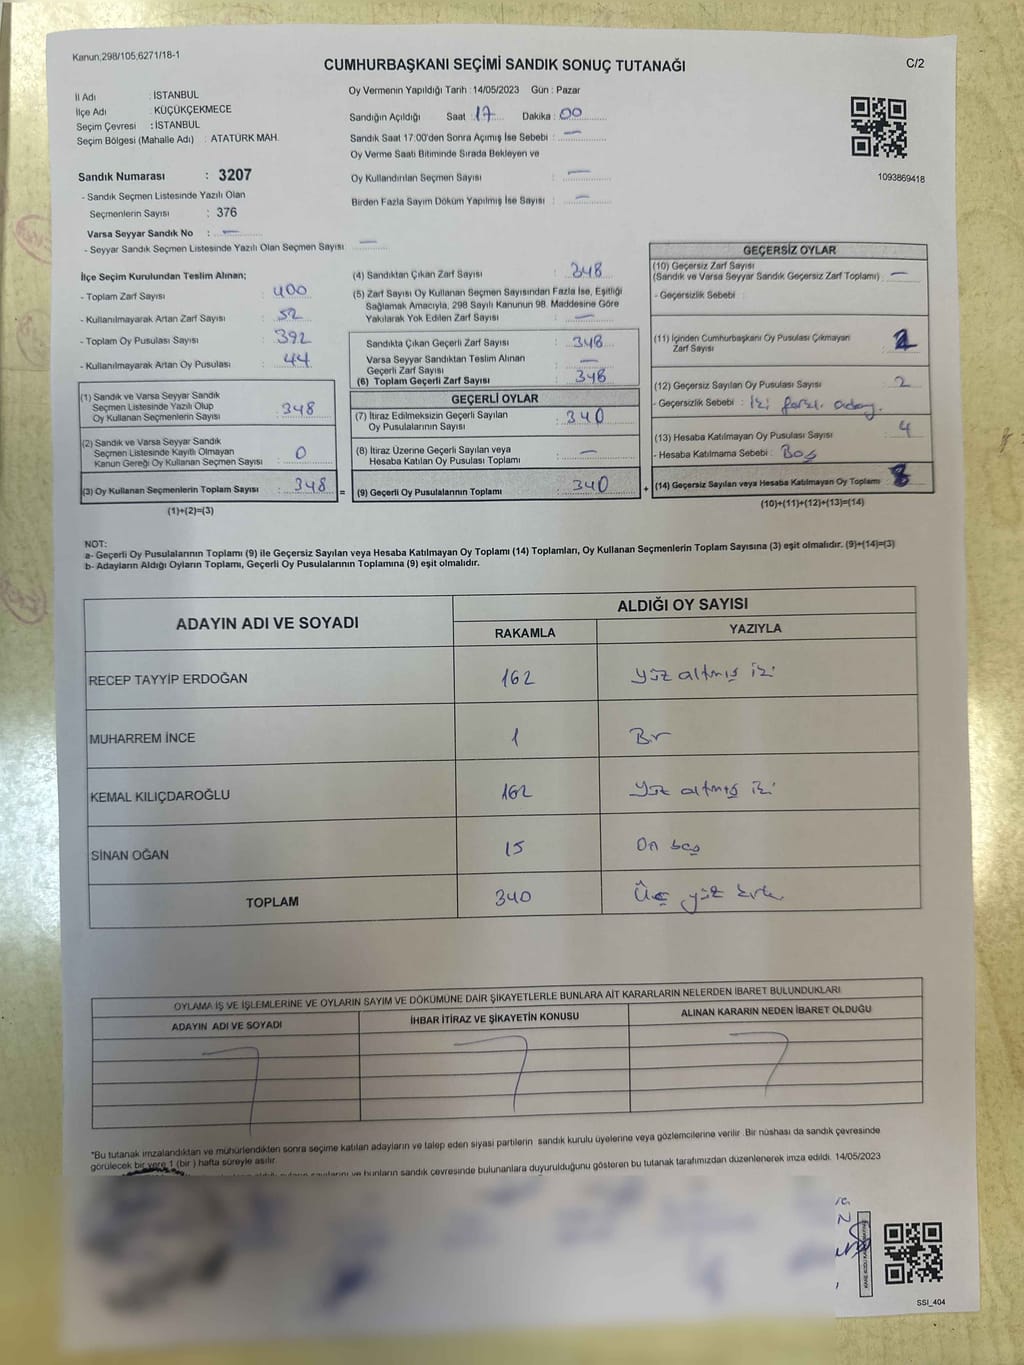 Kanun;298/105;6271/18-1
CUMHURBAŞKANI SEÇİMİ SANDIK SONUÇ TUTANAĞI
C/2
İl Adı : İSTANBUL
İlçe Adı : KÜÇÜKÇEKMECE
Seçim Çevresi : İSTANBUL
Seçim Bölgesi (Mahalle Adı) : ATATÜRK MAH.
Sandık Numarası : 3207
- Sandık Seçmen Listesinde Yazılı Olan
Seçmenlerin Sayısı : 376
Varsa Seyyar Sandık No : —
- Seyyar Sandık Seçmen Listesinde Yazılı Olan Seçmen Sayısı : —
Oy Vermenin Yapıldığı Tarih : 14/05/2023 Gün : Pazar
Sandığın Açıldığı Saat : 17 Dakika : 00
Sandık Saat 17:00'den Sonra Açımış İse Sebebi : —
Oy Verme Saati Bitiminde Sırada Bekleyen ve
Oy Kullandırılan Seçmen Sayısı : —
Birden Fazla Sayım Döküm Yapılmış İse Sayısı : —
1093869418
İlçe Seçim Kurulundan Teslim Alınan;
- Toplam Zarf Sayısı : 400
- Kullanılmayarak Artan Zarf Sayısı : 52
- Toplam Oy Pusulası Sayısı : 392
- Kullanılmayarak Artan Oy Pusulası : 44
(1) Sandık ve Varsa Seyyar Sandık
Seçmen Listesinde Yazılı Olup
Oy Kullanan Seçmenlerin Sayısı : 348
(2) Sandık ve Varsa Seyyar Sandık
Seçmen Listesinde Kayıtlı Olmayan
Kanun Gereği Oy Kullanan Seçmen Sayısı : 0
(3) Oy Kullanan Seçmenlerin Toplam Sayısı : 348 =
(1)+(2)=(3)
(4) Sandıktan Çıkan Zarf Sayısı : 348
(5) Zarf Sayısı Oy Kullanan Seçmen Sayısından Fazla İse, Eşitliği
Sağlamak Amacıyla, 298 Sayılı Kanunun 98. Maddesine Göre
Yakılarak Yok Edilen Zarf Sayısı : —
Sandıkta Çıkan Geçerli Zarf Sayısı : 348
Varsa Seyyar Sandıktan Teslim Alınan
Geçerli Zarf Sayısı : —
(6) Toplam Geçerli Zarf Sayısı : 348
GEÇERLİ OYLAR
(7) İtiraz Edilmeksizin Geçerli Sayılan
Oy Pusulalarının Sayısı : 340
(8) İtiraz Üzerine Geçerli Sayılan veya
Hesaba Katılan Oy Pusulası Toplamı : —
(9) Geçerli Oy Pusulalarının Toplamı : 340 +
GEÇERSİZ OYLAR
(10) Geçersiz Zarf Sayısı
(Sandık ve Varsa Seyyar Sandık Geçersiz Zarf Toplamı) : —
- Geçersizlik Sebebi :
(11) İçinden Cumhurbaşkanı Oy Pusulası Çıkmayan
Zarf Sayısı : 2
(12) Geçersiz Sayılan Oy Pusulası Sayısı : 2
- Geçersizlik Sebebi : İki farklı aday.
(13) Hesaba Katılmayan Oy Pusulası Sayısı : 4
- Hesaba Katılmama Sebebi : Boş
(14) Geçersiz Sayılan veya Hesaba Katılmayan Oy Toplamı : 8
(10)+(11)+(12)+(13)=(14)
NOT:
a- Geçerli Oy Pusulalarının Toplamı (9) ile Geçersiz Sayılan veya Hesaba Katılmayan Oy Toplamı (14) Toplamları, Oy Kullanan Seçmenlerin Toplam Sayısına (3) eşit olmalıdır. (9)+(14)=(3)
b- Adayların Aldığı Oyların Toplamı, Geçerli Oy Pusulalarının Toplamına (9) eşit olmalıdır.
ADAYIN ADI VE SOYADI
ALDIĞI OY SAYISI
RAKAMLA YAZIYLA
RECEP TAYYİP ERDOĞAN 162 Yüz altmış iki
MUHARREM İNCE 1 Bir
KEMAL KILIÇDAROĞLU 162 Yüz altmış iki
SİNAN OĞAN 15 On beş
TOPLAM 340 Üç yüz kırk
OYLAMA İŞ VE İŞLEMLERİNE VE OYLARIN SAYIM VE DÖKÜMÜNE DAİR ŞİKAYETLERLE BUNLARA AİT KARARLARIN NELERDEN İBARET BULUNDUKLARI
ADAYIN ADI VE SOYADI İHBAR İTİRAZ VE ŞİKAYETİN KONUSU ALINAN KARARIN NEDEN İBARET OLDUĞU
"Bu tutanak imzalandıktan ve mühürlendikten sonra seçime katılan adayların ve talep eden siyasi partilerin sandık kurulu üyelerine veya gözlemcilerine verilir .Bir nüshası da sandık çevresinde
görülecek bir yere 1 (bir ) hafta süreyle asılır.
ve bunların sandık çevresinde bulunanlara duyurulduğunu gösteren bu tutanak tarafımızdan düzenlenerek imza edildi. 14/05/2023
SSI_404